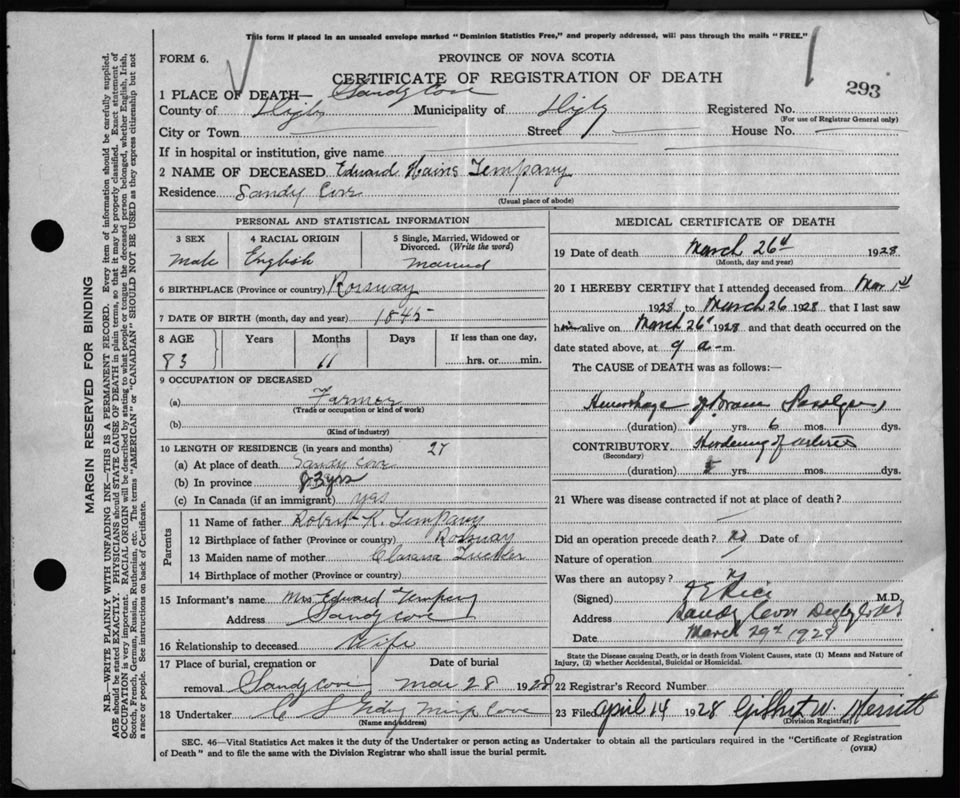 This form if placed in an unsealed envelope marked "Dominion Statistics Free," and properly addressed, will pass through the mails "FREE."
FORM 6.
PROVINCE OF NOVA SCOTIA
CERTIFICATE OF REGISTRATION OF DEATH
293
1 PLACE OF DEATH— Sandy Cove
County of Digby Municipality of Digby Registered No.
(For use of Registrar General only)
City or Town Street House No.
If in hospital or institution, give name
2 NAME OF DECEASED Edward Hains Tempany
Residence Sandy Cove
(Usual place of abode)
PERSONAL AND STATISTICAL INFORMATION
3 SEX 4 RACIAL ORIGIN 5 Single, Married, Widowed or Divorced. (Write the word)
Male English Married
6 BIRTHPLACE (Province or country) Rossway
7 DATE OF BIRTH (month, day and year) 1845
8 AGE Years Months Days If less than one day,
83 11 hrs. or min.
9 OCCUPATION OF DECEASED
(a) Farmer
(Trade or occupation or kind of work)
(b)
(Kind of industry)
10 LENGTH OF RESIDENCE (in years and months) 27
(a) At place of death Sandy Cove
(b) In province 83 yrs
(c) In Canada (if an immigrant) yas
Parents
11 Name of father Robert K. Tempany
12 Birthplace of father (Province or country) Rossway
13 Maiden name of mother Tucker
14 Birthplace of mother (Province or country)
15 Informant's name Mrs Edward Tempany
Address Sandy Cove
16 Relationship to deceased Wife
17 Place of burial, cremation or Date of burial
removal Sandy cove Mar 28 1928
18 Undertaker C S Mink Cove
(Name and address)
MEDICAL CERTIFICATE OF DEATH
19 Date of death March 26 1928
(Month, day and year)
20 I HEREBY CERTIFY that I attended deceased from Mar 1st
1928 to March 26 1928 that I last saw
him alive on March 26 1928 and that death occurred on
date stated above, at 9 a—m.
The CAUSE of DEATH was as follows:—
Hemorhage of brain
(duration) yrs. 6 mos. dys.
CONTRIBUTORY. Hardening of arteries
(Secondary)
(duration) yrs. mos. dys.
21 Where was disease contracted if not at place of death?
Did an operation precede death? no Date of
Nature of operation
Was there an autopsy?
(Signed) Rice M.D.
Address Sandy Cove Digby
Date March 29 1928
State the Disease causing Death, or in death from Violent Causes, state (1) Means and Nature of
Injury, (2) whether Accidental, Suicidal or Homicidal.
22 Registrar's Record Number
23 Filed April 14 1928 Gilbert W. Merritt
(Division Registrar)
SEC. 46—Vital Statistics Act makes it the duty of the Undertaker or person acting as Undertaker to obtain all the particulars required in the "Certificate of Registration
of Death" and to file the same with the Division Registrar who shall issue the burial permit.
(OVER)
MARGIN RESERVED FOR BINDING
N.B.—WRITE PLAINLY WITH UNFADING INK—THIS IS A PERMANENT RECORD. Every item of information should be carefully supplied.
AGE should be stated EXACTLY. PHYSICIANS should STATE CAUSE OF DEATH in plain terms, so that it may be properly classified. Exact statement of
OCCUPATION is very important. RACIAL ORIGIN will be described by stating to what people or tongue the deceased person belonged, whether English, Irish,
Scotch, French, German, Russian, Ruthenian, etc. The terms "AMERICAN" or "CANADIAN" SHOULD NOT BE USED as they express citizenship but not
a race or people. See instructions on back of Certificate.